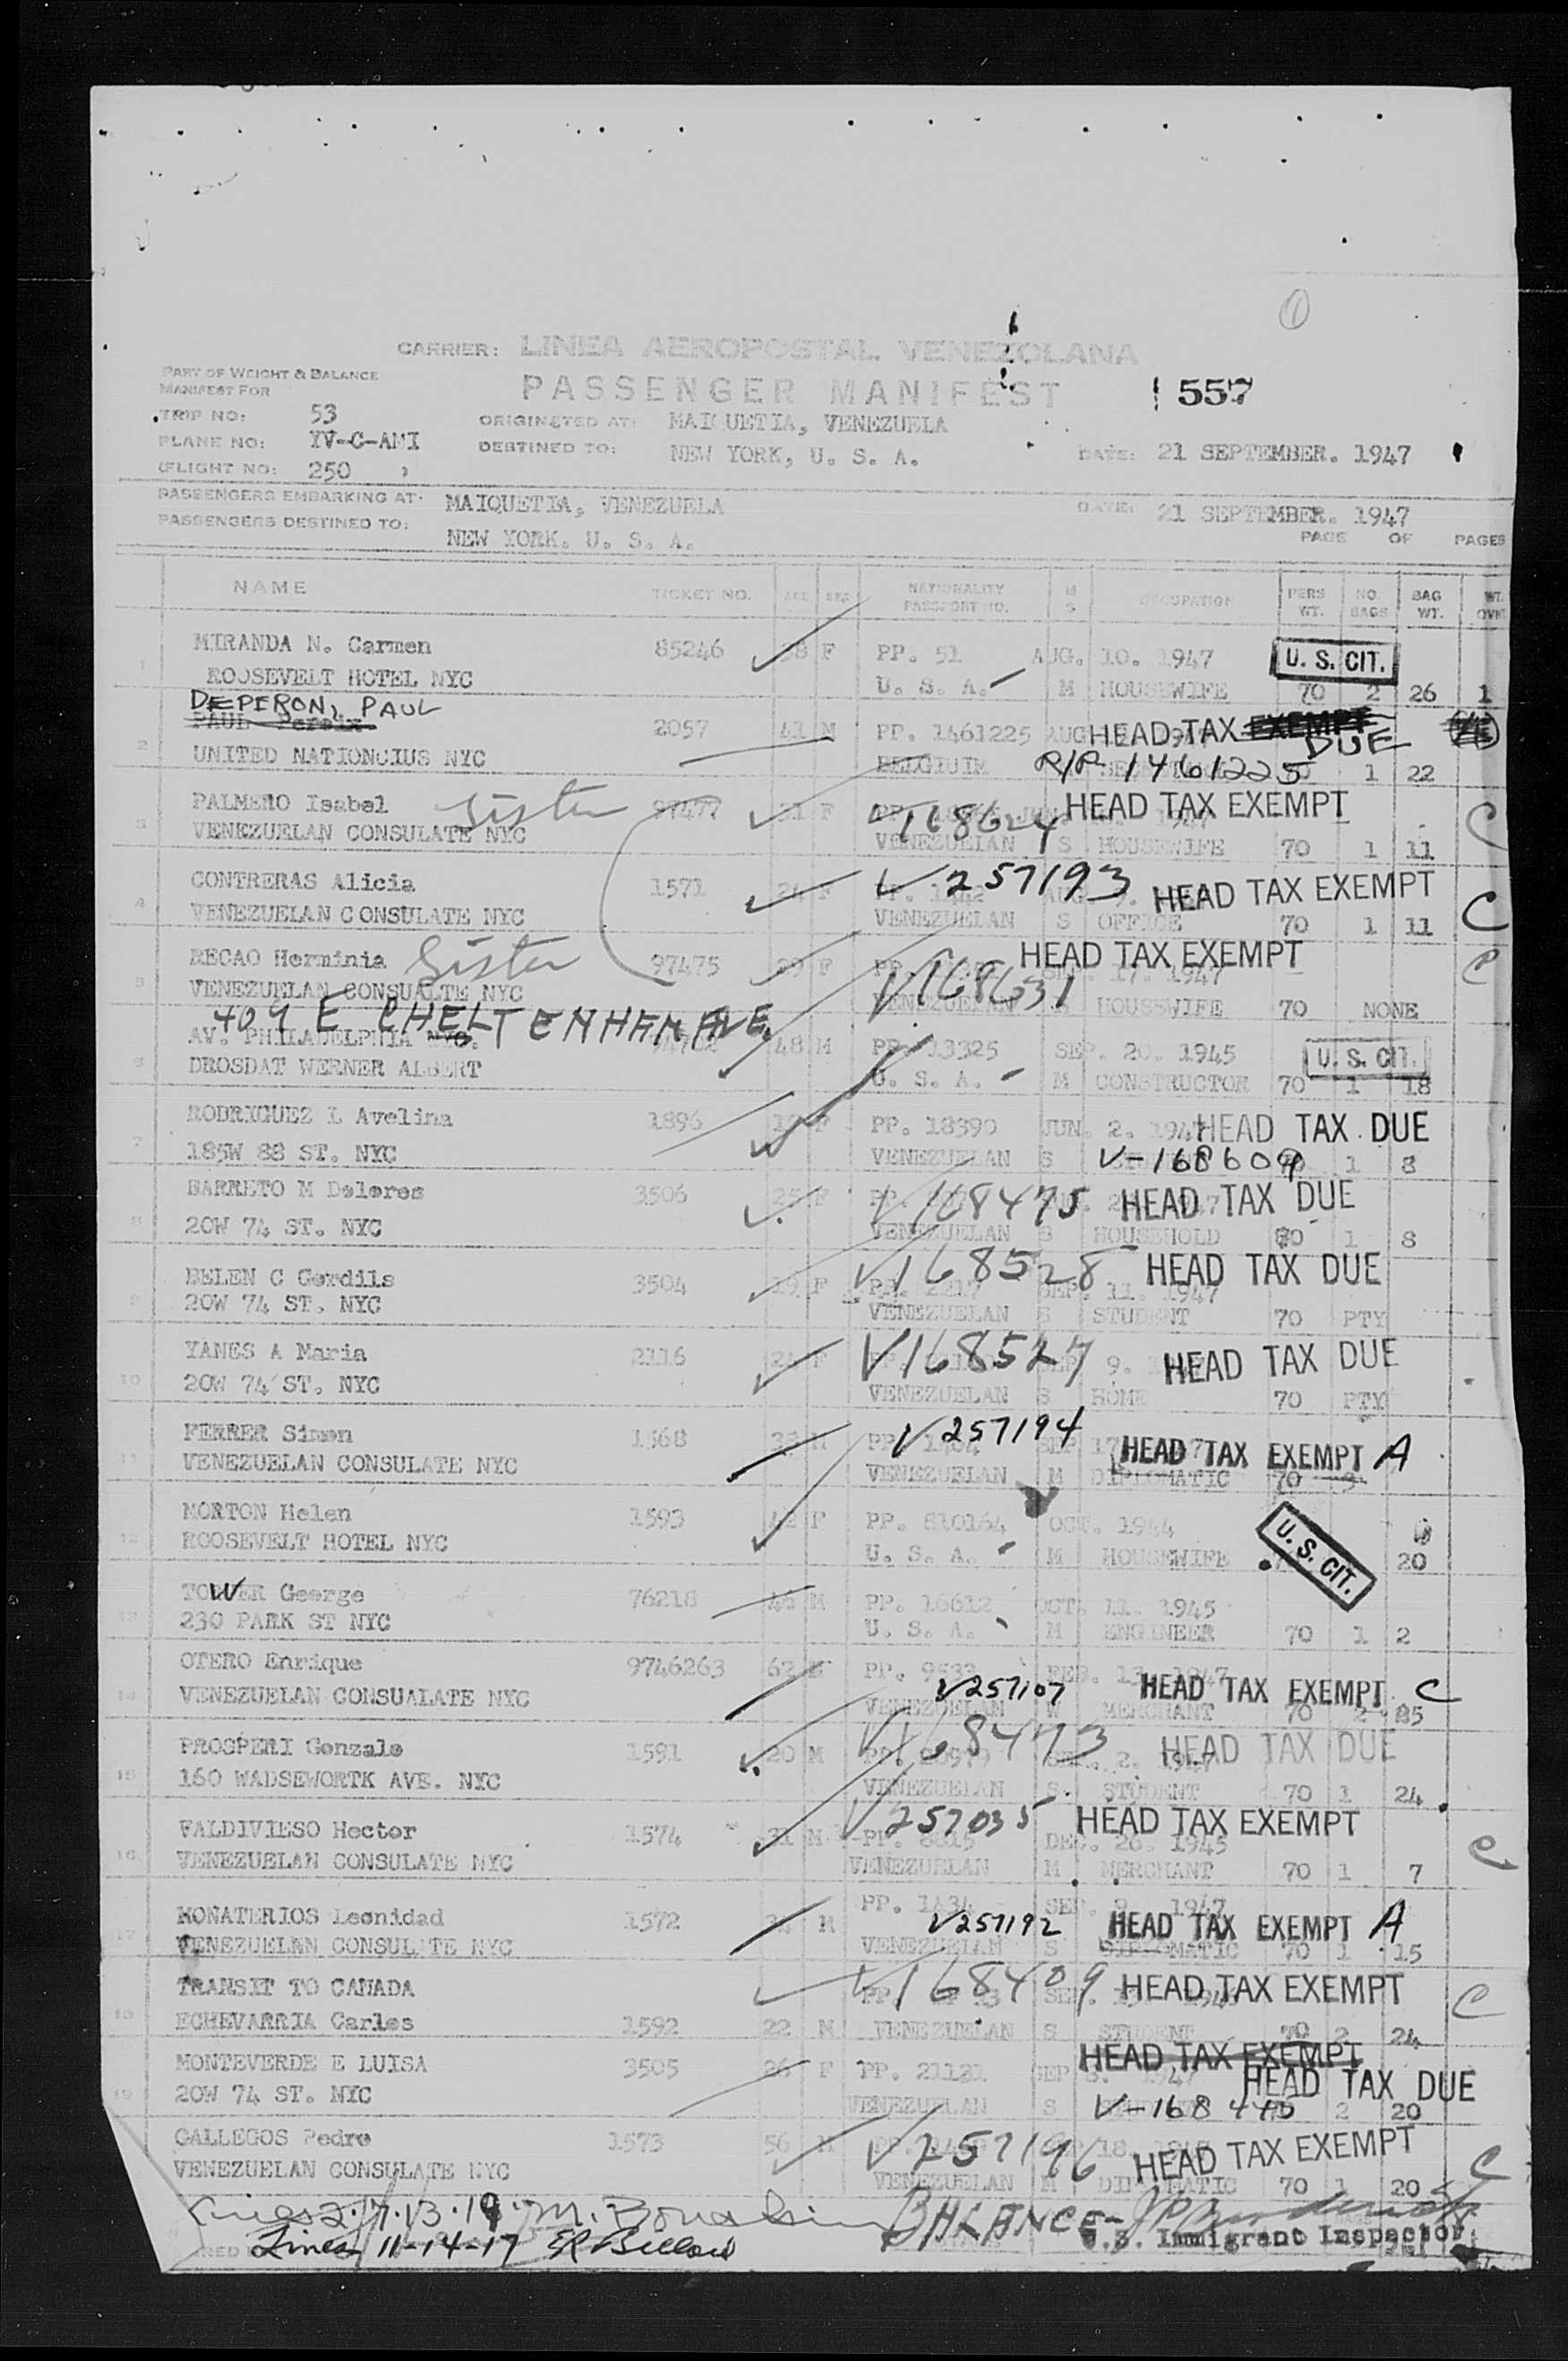 CARRIER: LINEA AEROPOSTAL VENEZOLANA
PART OF WEIGHT & BALANCE
MANIFEST FOR
PASSENGER MANIFEST
557
TRIP NO: 53
ORIGINATED AT: MAIQUETIA, VENEZUELA
PLANE NO: YV-C-AMI
DESTINED TO: NEW YORK, U. S. A.
DATE: 21 SEPTEMBER. 1947
(FLIGHT NO: 250 )
PASSENGERS EMBARKING AT: MAIQUETIA, VENEZUELA
DATE: 21 SEPTEMBER. 1947
PASSENGERS DESTINED TO: NEW YORK. U. S. A.
PAGE OF PAGES
NAME TICKET NO. AGE SEX NATIONALITY PASSPORT NO. M S OCCUPATION PERS WT. NO. BAGS BAG WT. WT. OVR
1 MIRANDA N. Carmen 85246 F PP. 51 AUG. 10. 1947 U. S. CIT.
ROOSEVELT HOTEL NYC U. S. A. M HOUSEWIFE 70 2 26 1
DEPERON, PAUL
2 PAUL 2057 41 M PP. 1461225 AUG HEAD TAX EXEMPT DUE
UNITED NATIONCIUS NYC BELGIUIM P/P 1461225 1 22
3 PALMERO Isabel Sister 97477 21 F V168624 HEAD TAX EXEMPT C
VENEZUELAN CONSULATE NYC VENEZUELIAN S HOUSEWIFE 70 1 11
4 CONTRERAS Alicia 1571 24 F V257193 HEAD TAX EXEMPT
VENEZUELAN CONSULATE NYC VENEZUELAN S OFFICE 70 1 11 C
5 RECAO Herminia Sister 97475 29 F V168631 17. 1947 HEAD TAX EXEMPT C
VENEZUELAN CONSUALTE NYC VENEZUELAN HOUSEWIFE 70 NONE
409 E CHELTENHAM AVE.
AV. PHILADELPHIA NYC. 48 M PP. 13325 SEP. 20. 1945 U. S. CIT.
6 DROSDAT WERNER ALBERT U. S. A. M CONSTRUCTOR 70 1 18
7 RODRIGUEZ L Avelina 1896 F PP. 18390 JUN. 2. 1947 HEAD TAX DUE
185W 88 ST. NYC VENEZUELAN S V-168609 1 8
8 BARRETO M Dolores 3506 25 F V168475 HEAD TAX DUE
20W 74 ST. NYC VENEZUELAN S HOUSEHOLD 70 1 8
9 BELEN C Gordils 3504 19 F V168528 SEP. 11. 1947 HEAD TAX DUE
20W 74 ST. NYC VENEZUELAN S STUDENT 70 PTY
10 YANES A Maria 2116 24 F V168527 SEP 9. HEAD TAX DUE
20W 74 ST. NYC VENEZUELAN S HOME 70 PTY
11 FERRER Simon 1568 38 M V257194 SEP 17 HEAD TAX EXEMPT A
VENEZUELAN CONSULATE NYC VENEZUELAN M DIPLOMATIC 70 3
12 MORTON Helen 1593 42 F PP. 810164 OCT. 1944 U. S. CIT.
ROOSEVELT HOTEL NYC U. S. A. M HOUSEWIFE 20
13 TOWER George 76218 46 M PP. 16612 OCT. 11. 1945
230 PARK ST NYC U. S. A. M ENGINEER 70 1 2
14 OTERO Enrique 9746263 62 M PP. 9533 FEB. 13. 1947 V257107 HEAD TAX EXEMPT C
VENEZUELAN CONSUALATE NYC VENEZUELAN W MERCHANT 70 2 85
15 PROSPERI Gonzalo 1591 20 M V168473 2. 1947 HEAD TAX DUE
160 WADSEWORTK AVE. NYC VENEZUELAN S. STUDENT 70 1 24
16 VALDIVIESO Hector 1574 31 M V257035 DEC. 26. 1945 HEAD TAX EXEMPT C
VENEZUELAN CONSULATE NYC VENEZUELAN M MERCHANT 70 1 7
17 MONATERIOS Leonidad 1572 M PP. 1434 SEP. 9. 1947 V257192 HEAD TAX EXEMPT A
VENEZUELAN CONSULATE NYC VENEZUELAN S DIPLOMATIC 70 1 15
18 TRANSIT TO CANADA V168409 HEAD TAX EXEMPT C
ECHEVARRIA Carlos 1592 22 M VENEZUELAN S STUDENT 70 2 24
19 MONTEVERDE E LUISA 3505 26 F PP. 21121 SEP 1947 HEAD TAX EXEMPT HEAD TAX DUE
20W 74 ST. NYC VENEZUELAN S V-168445 2 20
GALLEGOS Pedro 1573 56 M V257196 18. HEAD TAX EXEMPT C
VENEZUELAN CONSULATE NYC VENEZUELAN M DIPLOMATIC 70 1 20
Lines 2.7.13.19 BALANCE-
Lines 11-14-17 U.S. Immigrant Inspector